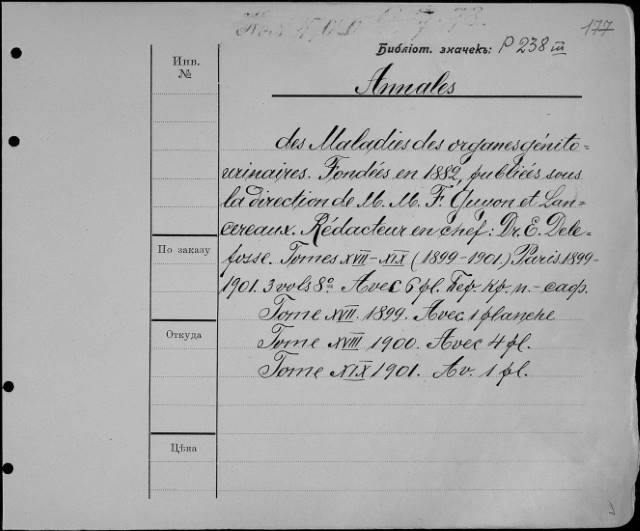 177
Библіот. значекъ: P 238 III
Инв.
№
Annales
des Maladies des organes génito-
urinaires. Fondées en 1882, publiées sous
la direction de M. M. F. Guyon et Lan-
cereaux. Rédacteur en chef: Dr. E. Dele-
fosse. Tomes XVII-XIX (1899-1901.) Paris 1899-
По заказу
1901. 3 vols 8º Avec 6 pl. Пер. кр. п.- саф.
Tome XVII. 1899. Avec 1 planche
Откуда
Tome XVIII 1900. Avec 4 pl.
Tome XIX 1901. Av. 1 pl.
Цѣна